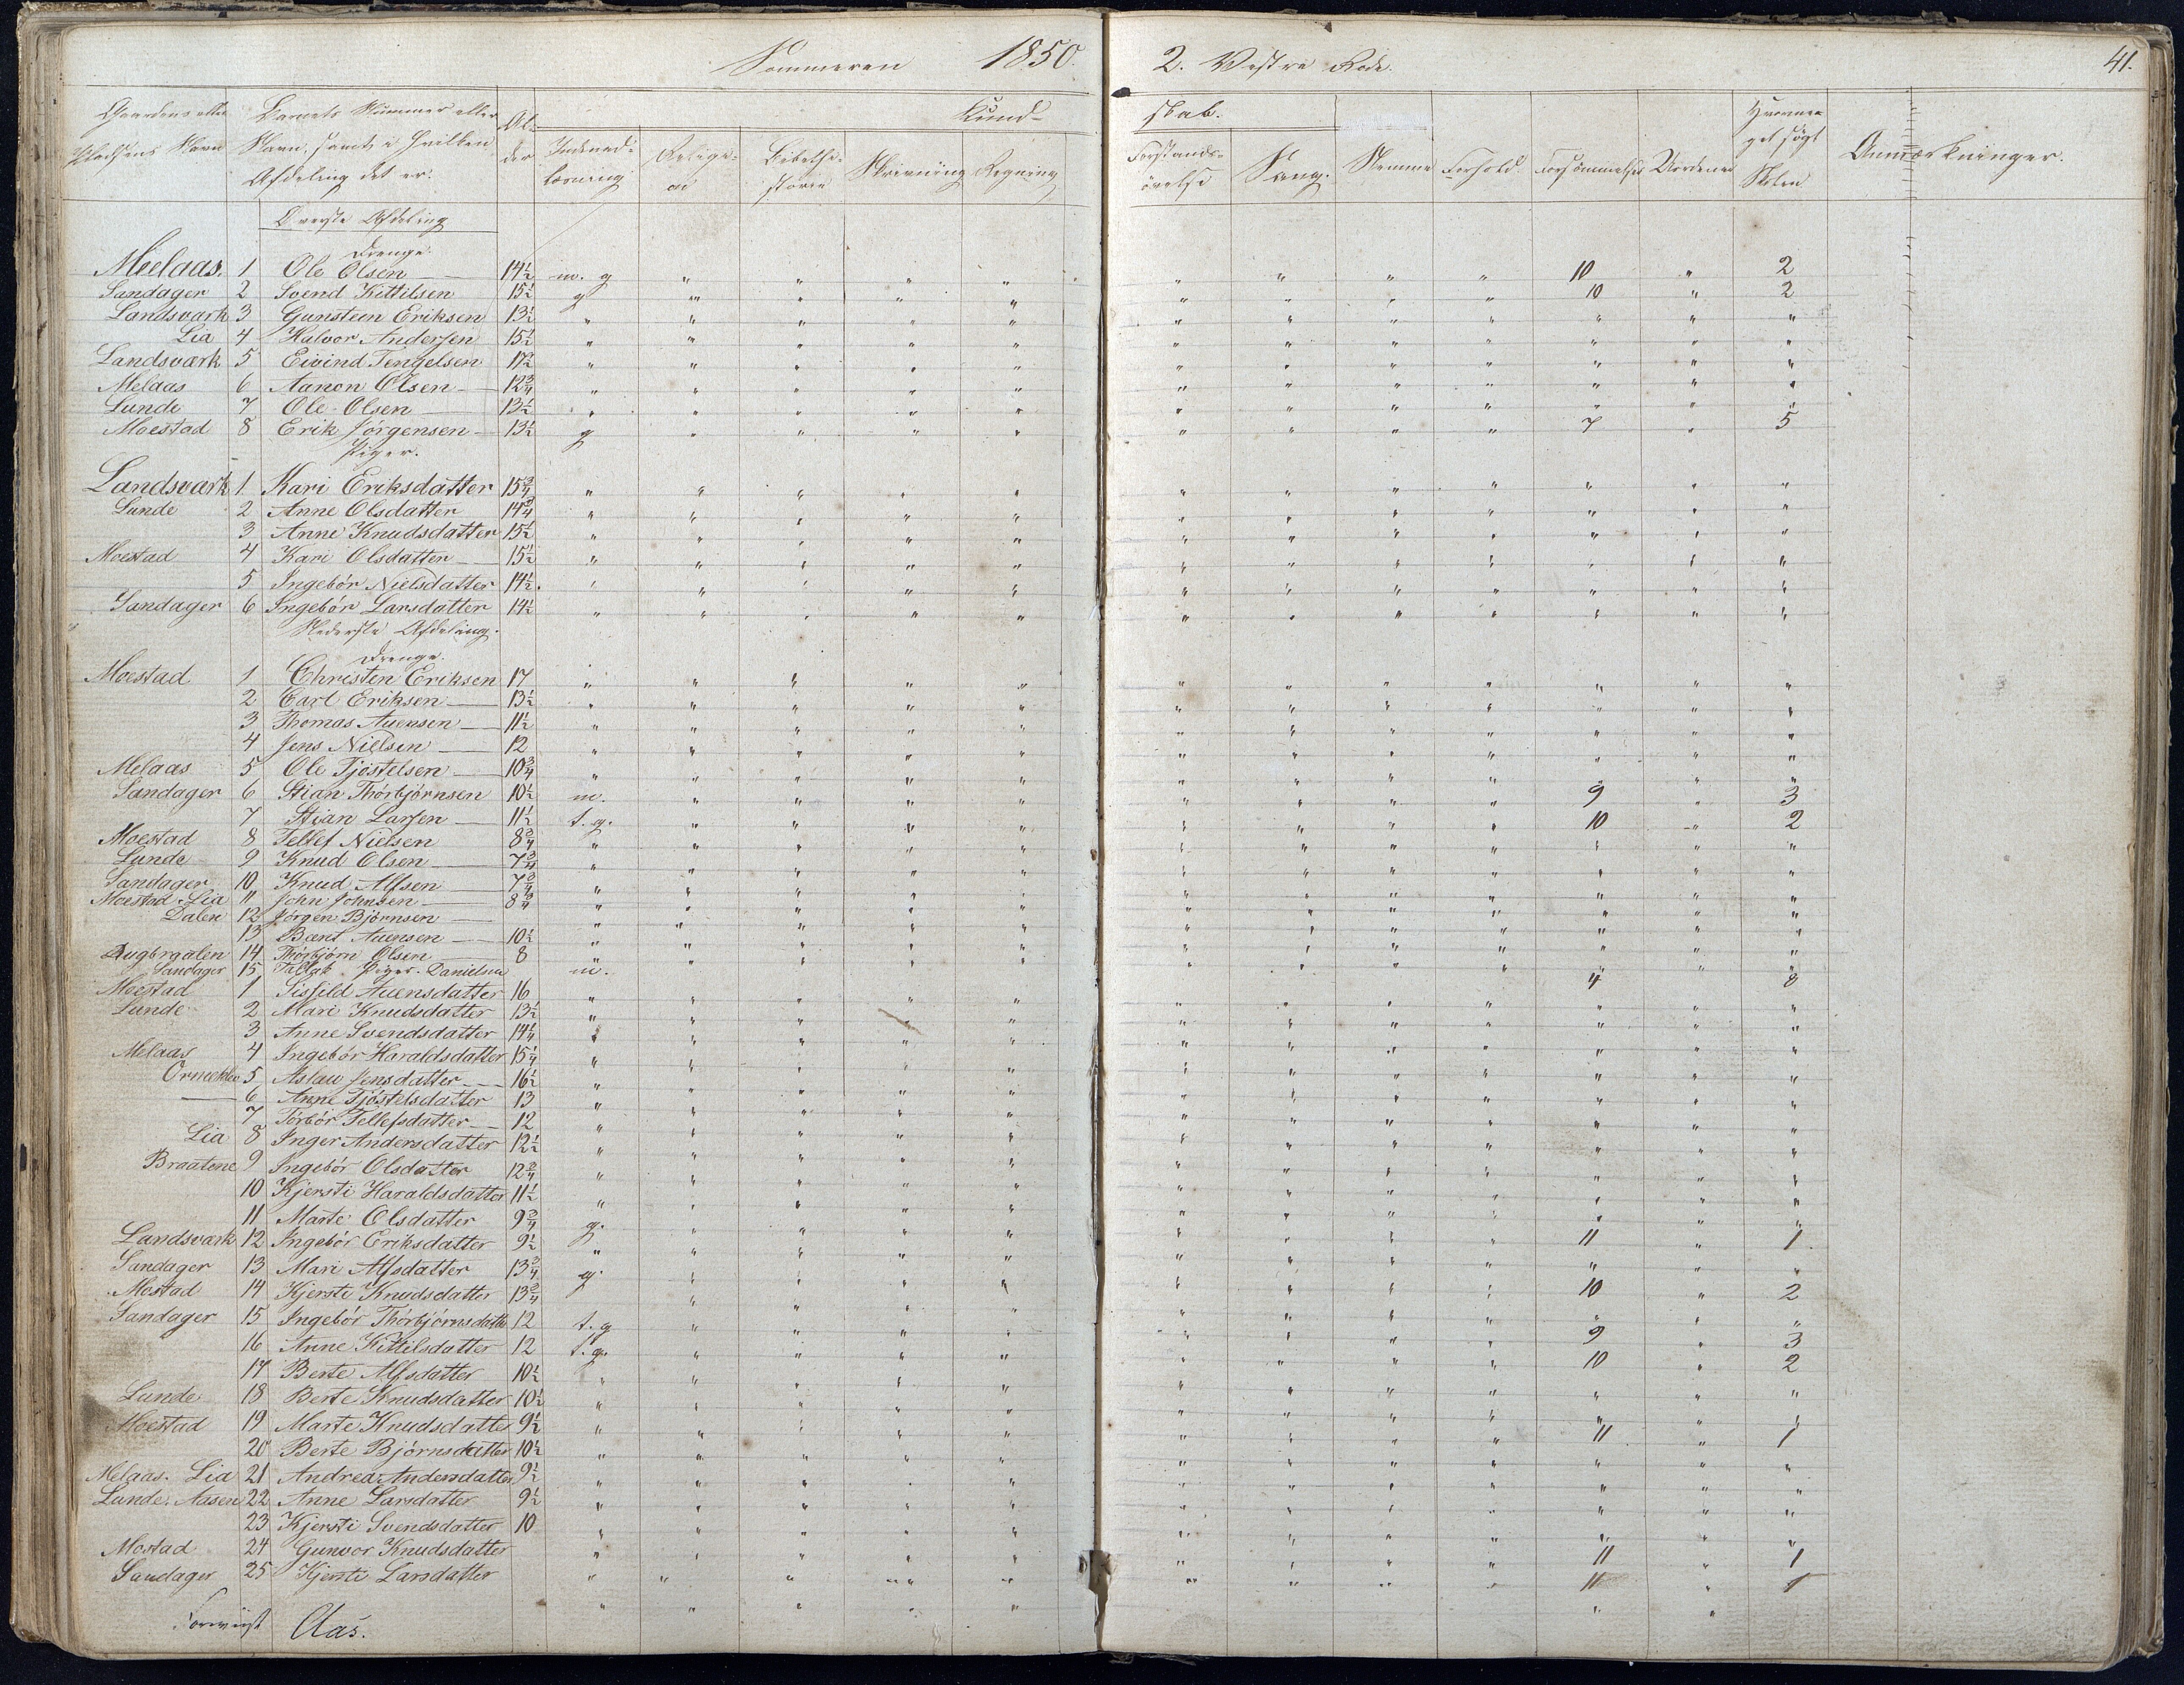 Sommeren 1850. 2. Vestre Rode. 41.
Gaardens eller Pladsens Navn | Barnets Nummer eller Navn, samt i hvilken Afdeling det er. | Alder | Kundskab. | Hvormeget søgt Skolen | Anmærkninger.
Indenadlæsning | Religion | Bibelhistorie | Skrivning | Regning | Forstandsøvelse | Sang. | Stemme | Forhold. | Forsømmelser | Uordener
Øverste Afdeling
Drenge.
Melaas. 1 Ole Olsen 14½ m. g " " " " " " " " 10 " 2
Sandager 2 Svend Kittilsen 15½ g " " " " " " " " 10 " 2
Landsvark 3 Gunsteen Eriksen 13½ " " " " " " " " " " " "
Lia 4 Halvor Andersen 15½ " " " " " " " " " " " "
Landsværk 5 Eivind Tengelsen 17½ " " " " " " " " " " " "
Melaas 6 Aanon Olsen 12¾ " " " " " " " " " " " "
Lunde 7 Ole Olsen 13½ " " " " " " " " " " " "
Moestad 8 Erik Jørgensen 13½ g " " " " " " " " 7 " 5
Piger.
Landsvark 1 Kari Eriksdatter 15¾ " " " " " " " " " " " "
Lunde 2 Anne Olsdatter 14¾ " " " " " " " " " " " "
3 Anne Knudsdatter 15½ " " " " " " " " " " " "
Moestad 4 Kari Olsdatter 15½ " " " " " " " " " " " "
5 Ingebór Nielsdatter 14½. " " " " " " " " " " " "
Sandager 6 Ingebór Larsdatter 14½ " " " " " " " " " " " "
Nederste Afdeling.
Drenge.
Moestad 1 Christen Eriksen 17 " " " " " " " " " " " "
2 Carl Eriksen 13½ " " " " " " " " " " " "
3 Thomas Auensen 11½ " " " " " " " " " " " "
4 Jens Nielsen 12 " " " " " " " " " " " "
Melaas 5 Ole Tjøstelsen 10¾ " " " " " " " " " " " "
Sandager 6 Stian Thórbjørnsen 10½ m. " " " " " " " " 9 " 3
7 Stian Larsen 11½ t. g. " " " " " " " " 10 " 2
Moestad 8 Tellef Nielsen 8¾ " " " " " " " " " " " "
Lunde 9 Knud Olsen 7¾ " " " " " " " " " " " "
Sandager 10 Knud Alfsen 7¾ " " " " " " " " " " " "
Moestad. Lia 11 John Johnsen 8¾ " " " " " " " " " " " "
Dalen 12 Jörgen Bjørnsen " " " " " " " " " " " "
13 Bernt Auensen 10½ " " " " " " " " " " " "
14 Thórbjørn Olsen 8 " " " " " " " " " " " "
Sandager 15 Tallak Piger. Danielsen m. 4 8
Moestad 1 Sisfild Auensdatter 16 " " " " " " " " " " " "
Lunde 2 Mari Knudsdatter 13½ " " " " " " " " " " " "
3 Anne Svendsdatter 14¼ " " " " " " " " " " " "
Melaas 4 Ingebór Haraldsdatter 15¼ " " " " " " " " " " " "
5 Aslau Jensdatter 16½ " " " " " " " " " " " "
6 Anne Tjøstelsdatter 13 " " " " " " " " " " " "
7 Tórbór Tellefsdatter 12 " " " " " " " " " " " "
Lia 8 Inger Andersdatter 12½ " " " " " " " " " " " "
Braatene 9 Ingebór Olsdatter 12¾ " " " " " " " " " " " "
10 Kjersti Haraldsdatter 11½ " " " " " " " " " " " "
11 Marte Olsdatter 9¾ g. " " " " " " " " 11 " 1
Landsvark 12 Ingebór Eriksdatter 9½ " " " " " " " " " " " "
Sandager 13 Mari Alfsdatter 13¾ g. " " " " " " " " 10 " 2
Mostad 14 Kjersti Knudsdatter 13¾ " " " " " " " " " "
Sandager 15 Ingebór Thórbjórnsdatter 12 t. g " " " " " " " " 9 " 3
16 Anne Kittilsdatter 12 t. g. " " " " " " " " 10 " 2
17 Berte Alfsdatter 10½ " " " " " " " " " " " "
Lunde 18 Berte Knudsdatter 10½ " " " " " " " " " " " "
Moestad 19 Marte Knudsdatter 9½ " " " " " " " " 11 " 1
20 Berte Bjórnsdatter 10½ " " " " " " " " " " " "
Melaas. Lia 21 Andrea Andersdatter 9½ " " " " " " " " " " " "
Lunde. Aasen 22 Anne Larsdatter 9½ " " " " " " " " " " " "
23 Kjersti Svendsdatter 10 " " " " " " " " " " " "
Mostad 24 Gunvor Knudsdatter " " " " " " " " 11 " 1
Sandager 25 Kjersti Larsdatter " " " " " " " " 11 " 1
Aas.